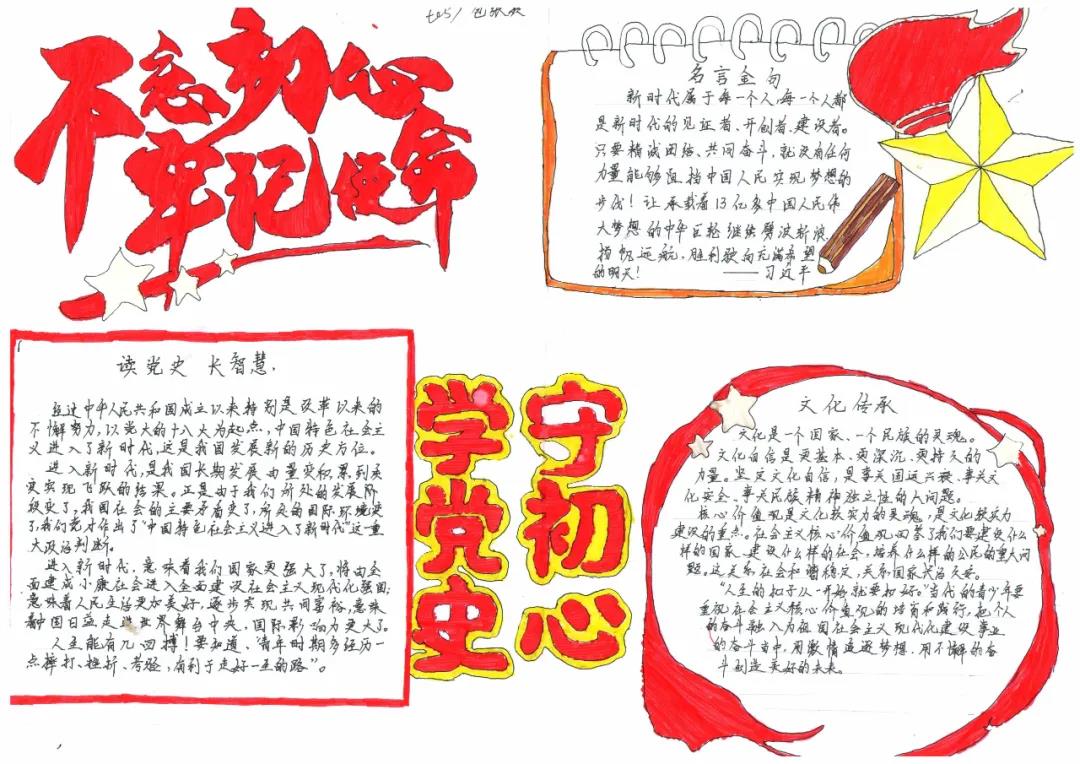 不忘初心
牢记使命
名言金句
新时代属于每一个人,每一个人都
是新时代的见证者、开创者、建设者。
只要精诚团结、共同奋斗,就没有任何
力量能够阻挡中国人民实现梦想的
步伐!让承载着13亿多中国人民伟
大梦想的中华巨轮继续劈波斩浪、
扬帆远航,胜利驶向充满希望
的明天!——习近平
读党史 长智慧.
经过中华人民共和国成立以来特别是改革以来的
不懈努力,以党大的十八大为起点,中国特色社会主
义进入了新时代,这是我国发展新的历史方位。
进入新时代,是我国长期发展由量变积累到质
变实现飞跃的结果。正是由于我们所处的发展阶
段变了,我国社会的主要矛盾变了,所处的国际环境变
了,我们党才作出了“中国特色社会主义进入了新时代”这一重
大政治判断。
进入新时代,意味着我们国家更强大了,将由全
面建成小康社会进入全面建设社会主义现代化强国;
意味着人民生活更加美好,逐步实现共同富裕,意味
着中国日益走进世界舞台中央,国际影响力更大了。
人生能有几回搏!要知道、“青年时期多经历一
点摔打、挫折、考验,有利于走好一生的路”。
学党史
守初心
文化传承
文化是一个国家、一个民族的灵魂。
文化自信是更基本、更深沉、更持久的
力量。坚定文化自信,是事关国运兴衰、事关文
化安全、事关民族精神独立性的大问题。
核心价值观是文化软实力的灵魂,是文化软实力
建设的重点。社会主义核心价值观回答了我们要建设什么
样的国家、建设什么样的社会、培养什么样的公民的重大问
题。这关系社会和谐稳定,关系国家长治久安。
“人生的扣子从一开始就要扣好。”当代的青少年要
重视社会主义核心价值观的培育和践行,把个人
的奋斗融入为祖国社会主义现代化建设事业
的奋斗当中,用激情追逐梦想,用不懈的奋
斗创造美好的未来。